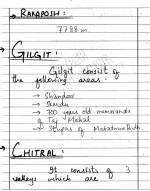 RAKAPOSHI:
7788 m.
GILGIT:
Gilgit consist of
the following areas:
→ Shandoor
→ Skardu
→ 700 years old
of Taj Mahal
→ Stupas of Mahatma
CHITRAL:
It consists of 3
valleys which are